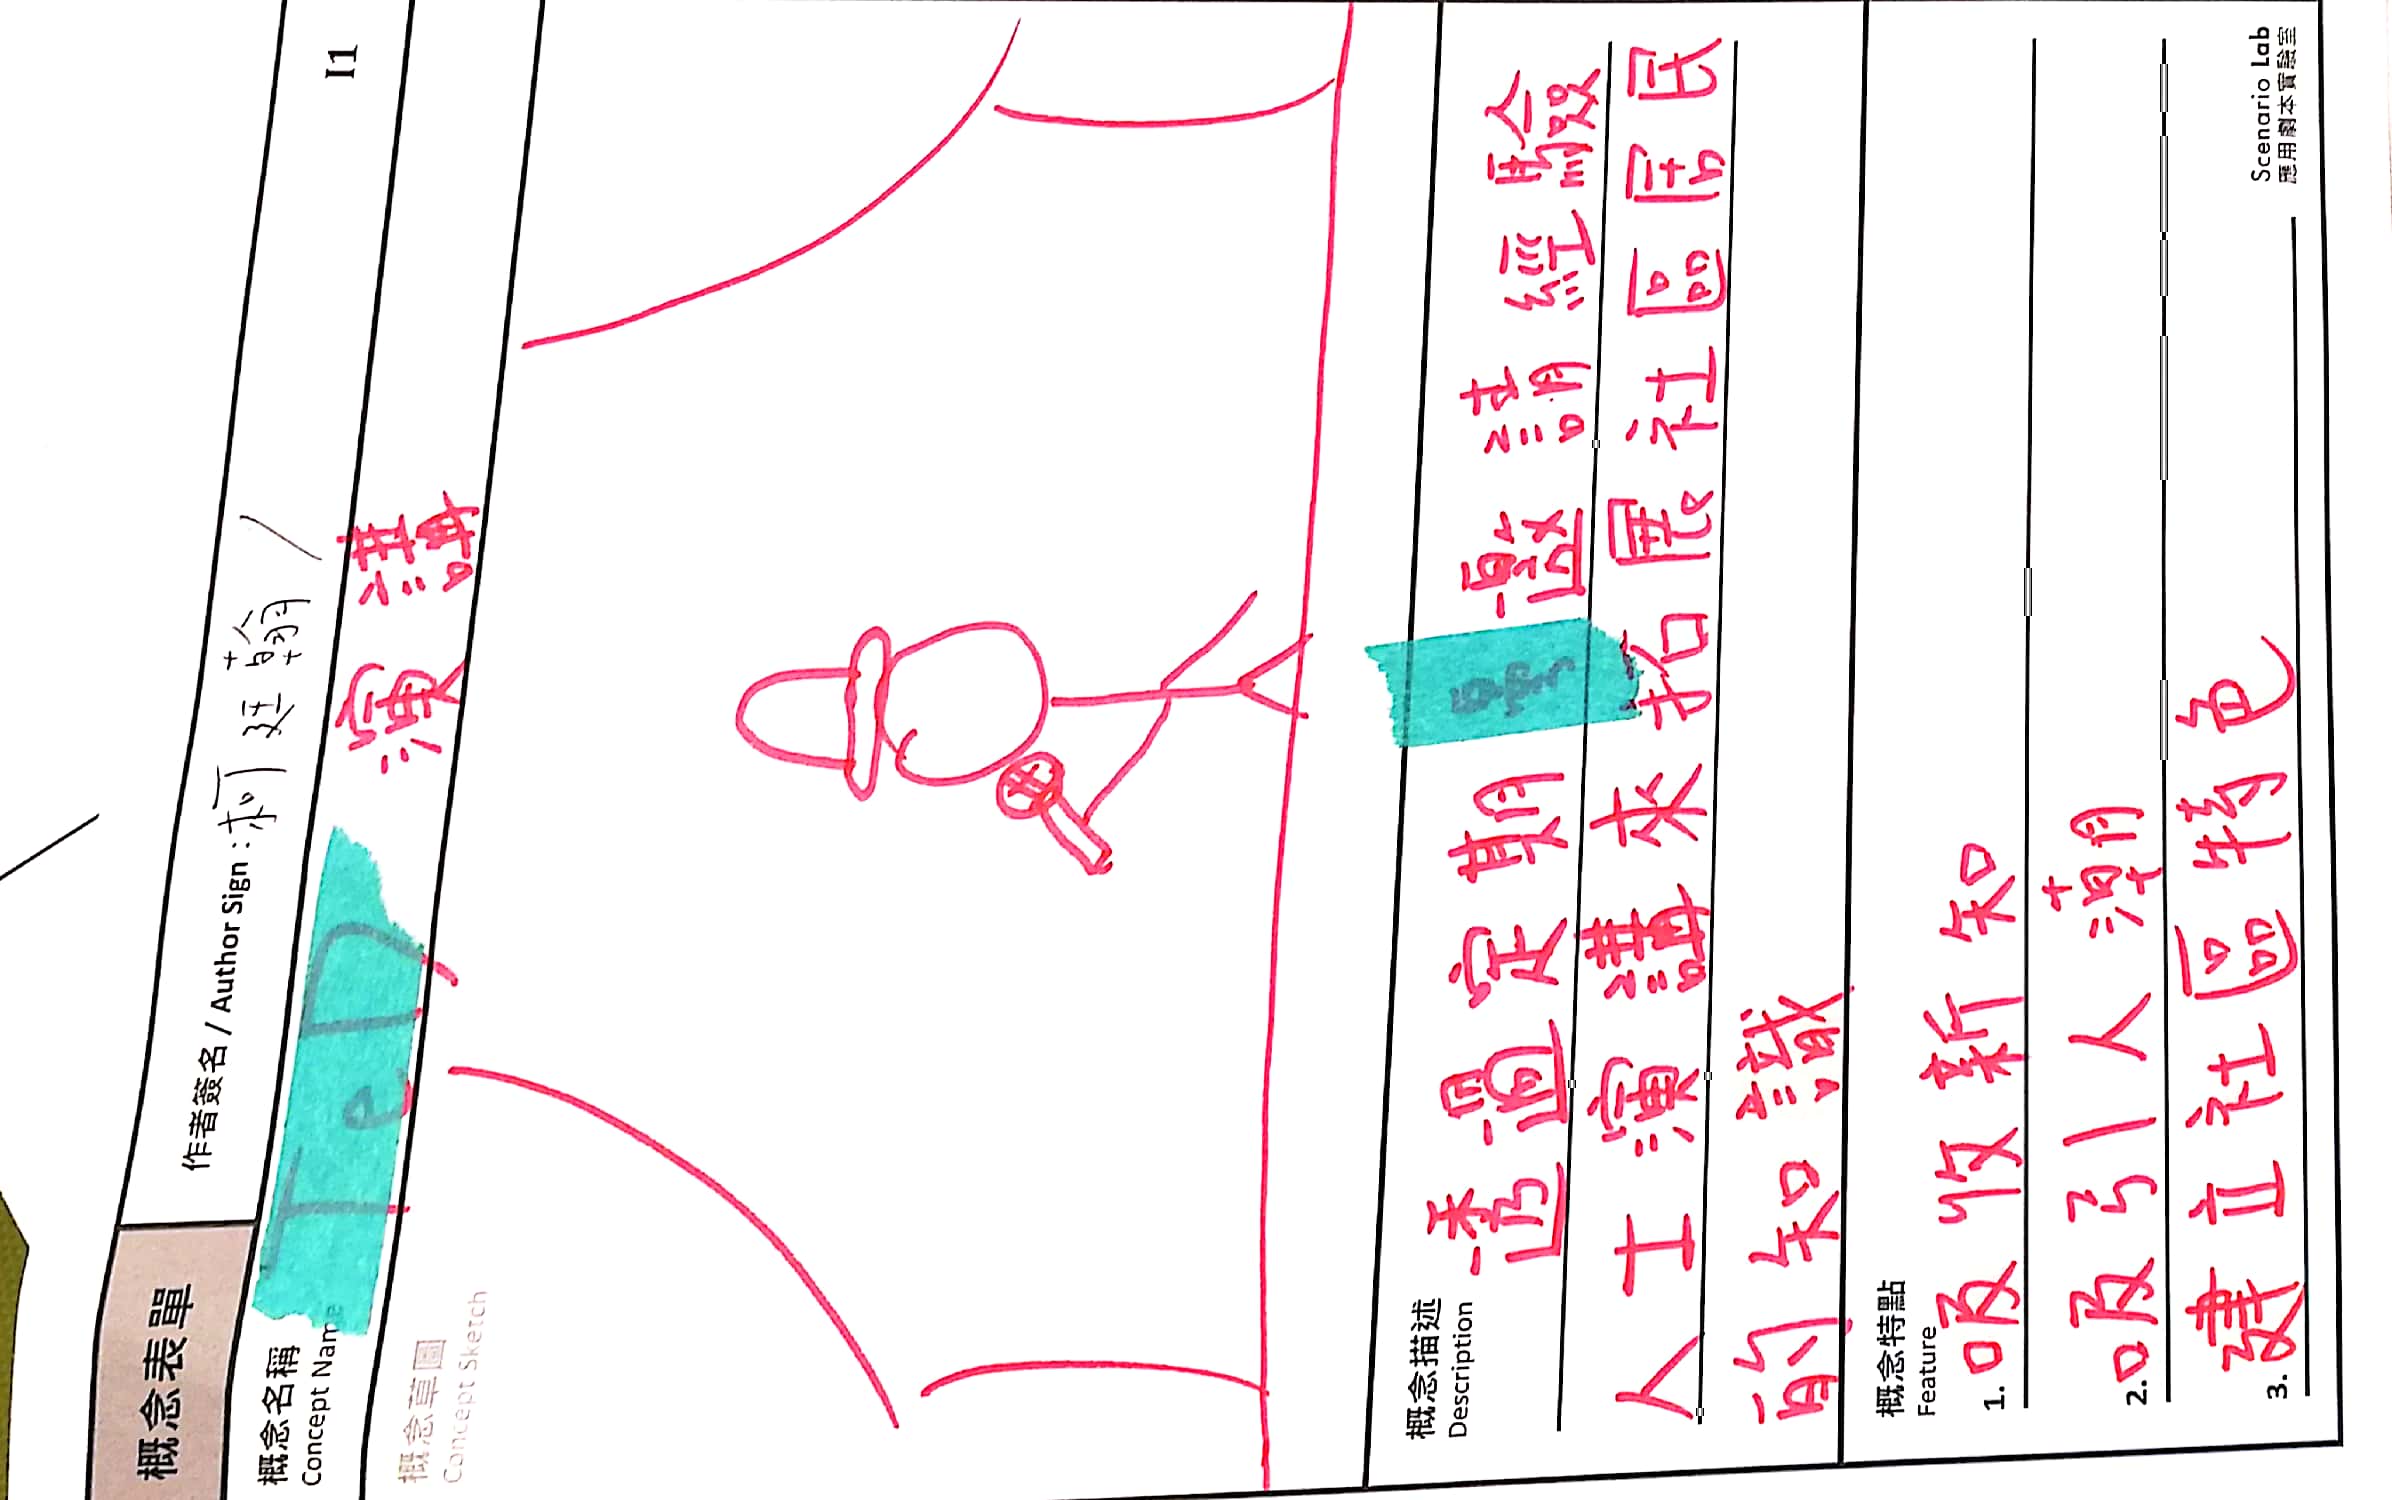 概念表單
作者簽名 / Author Sign : 柯廷翰 /
I1
概念名稱
Concept Name
TeD 演講
概念草圖
Concept Sketch
概念描述
Description
透過定期 邀請經驗
人工演講來拓展社區居民
的知識
概念特點
Feature
1. 吸收新知
2. 吸引人潮
3. 建立社區特色
Scenario Lab
應用劇本實驗室